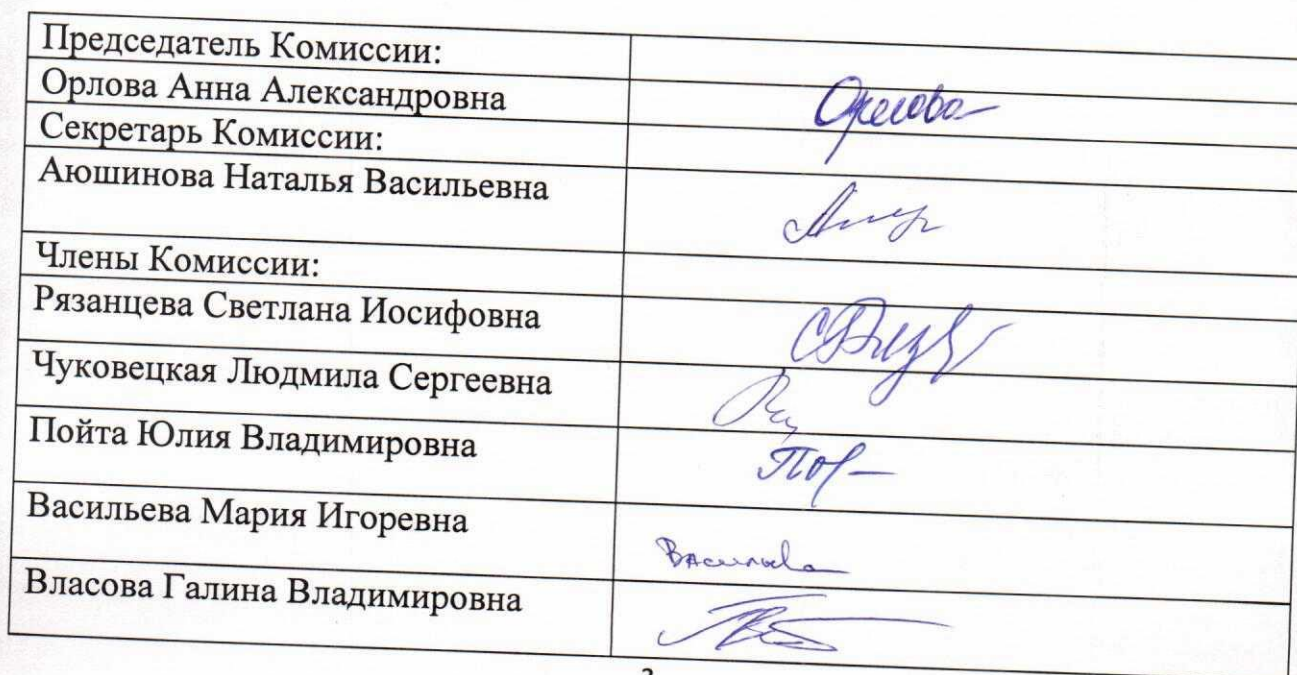 Председатель Комиссии:
Орлова Анна Александровна
Орлова
Секретарь Комиссии:
Аюшинова Наталья Васильевна
Члены Комиссии:
Рязанцева Светлана Иосифовна
Чуковецкая Людмила Сергеевна
Пойта Юлия Владимировна
Васильева Мария Игоревна
Васильева
Власова Галина Владимировна